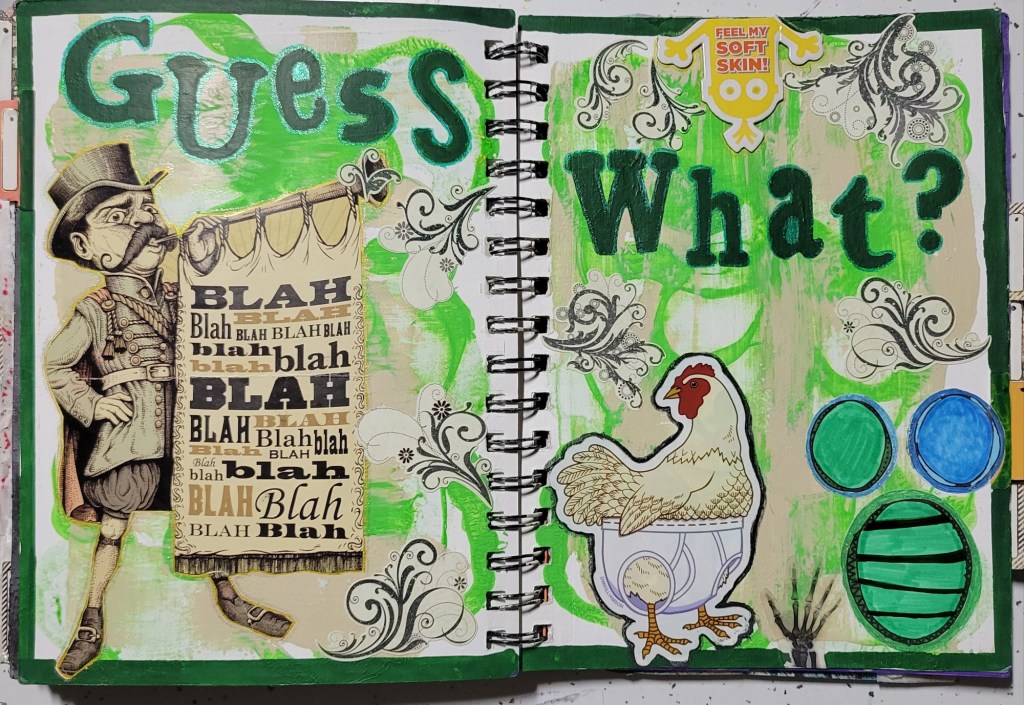 Guess
BLAH
BLAH
Blah BLAH BLAH BLAH
blah blah
blah
BLAH
BLAH
BLAH Blah blah
Blah BLAH
Blah
blah blah
BLAH Blah
BLAH Blah
FEEL MY
SOFT
SKIN!
What?